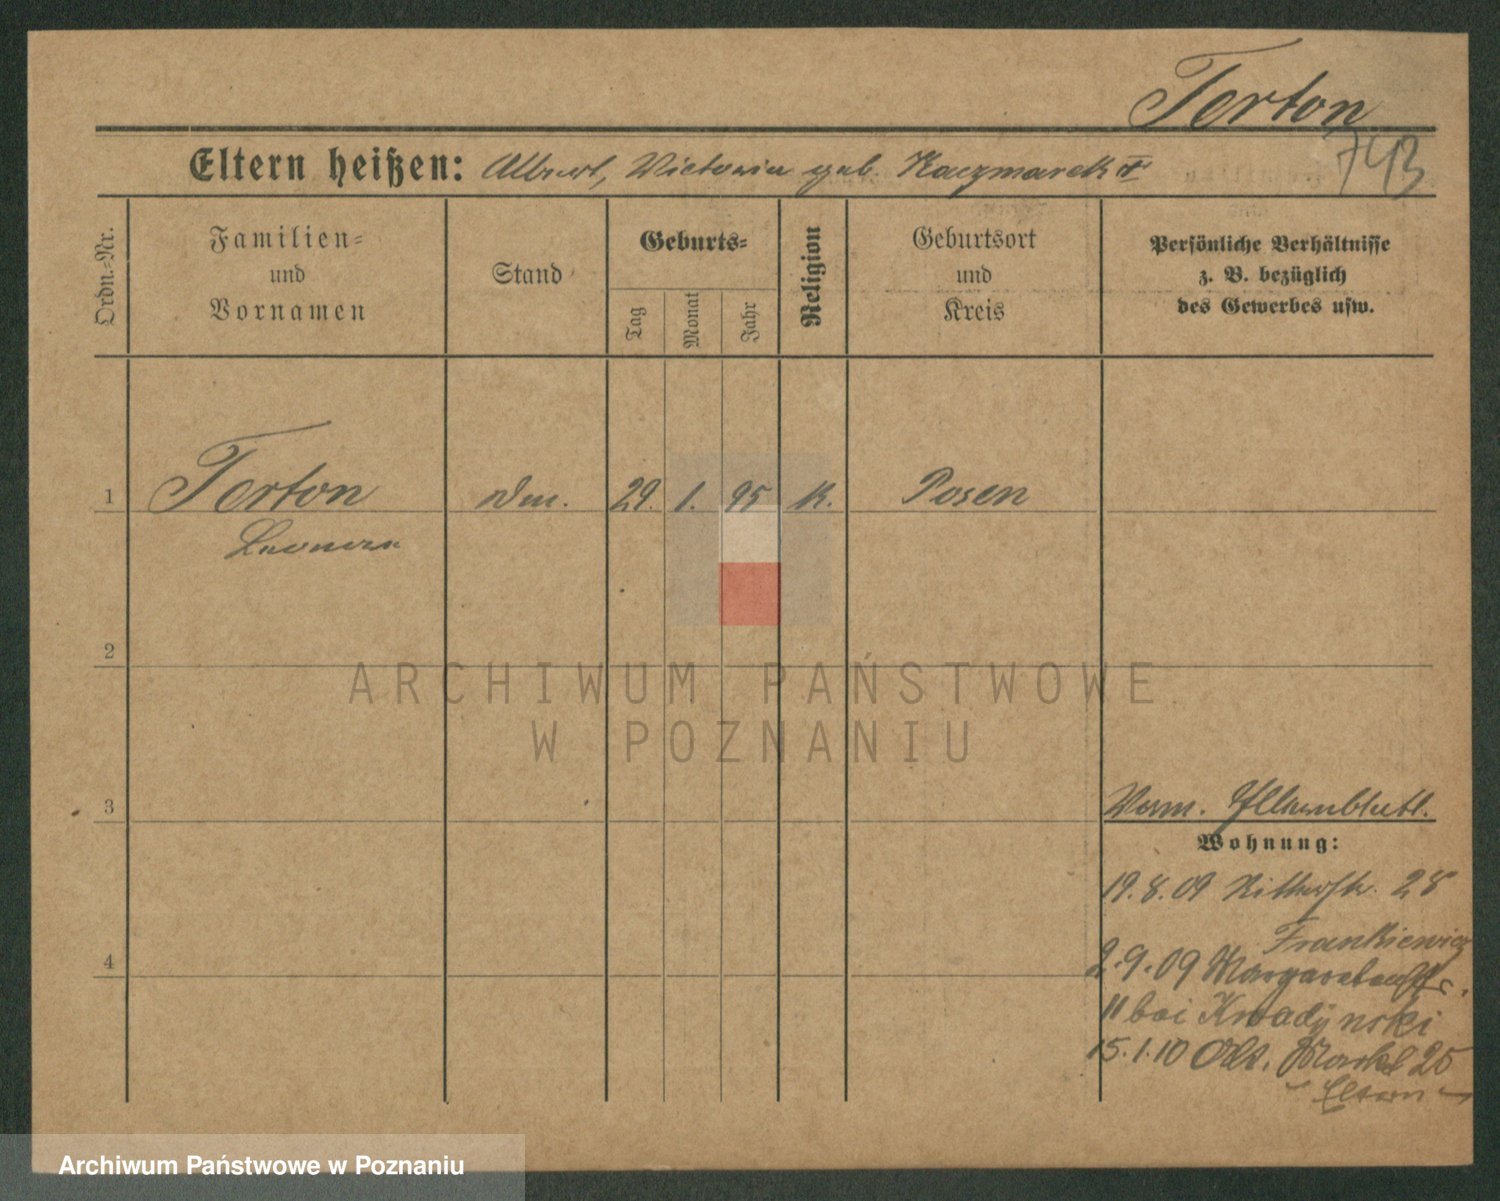 Terton
743
Eltern heißen: Albert, Victoria geb. Kaczmarek
Ordn.=Nr.
Familien=
und
Vornamen
Stand
Geburts=
Tag
Monat
Jahr
Religion
Geburtsort
und
Kreis
Persönliche Verhältnisse
z. B. bezüglich
des Gewerbes usw.
1 Terton 29. 1. 95 K. Posen
Leonora
2
ARCHIWUM PAŃSTWOWE
W POZNANIU
3
Wohnung:
19.8.09 Ritterstr. 28
Frankiewicz
4
2.9.09 Margaretenstr.
11 bei
15.1.10 Alt. Markt 25
Eltern
Archiwum Państwowe w Poznaniu